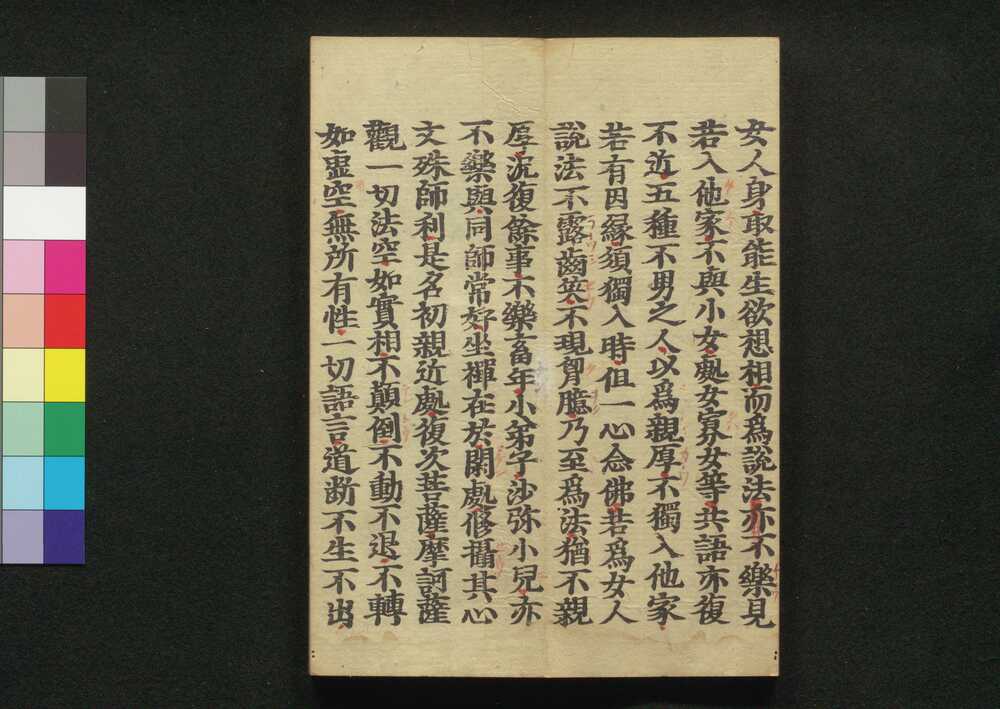 女人身取能生欲想相而爲説法亦不樂見
若入他家不與小女處女寡女等共語亦復
不近五種不男之人以爲親厚不獨入他家
若有因縁須獨入時但一心念佛若爲女人
説法不露齒𠷣不現胷臆乃至爲法猶不親
厚況復餘事不樂畜年小弟子沙弥小兒亦
不樂與同師常好坐禪在於閑處修攝其心
文殊師利是名初親近處復次菩薩摩訶薩
觀一切法空如實相不顛倒不動不退不轉
如虚空無所有性一切語言道断不生不出